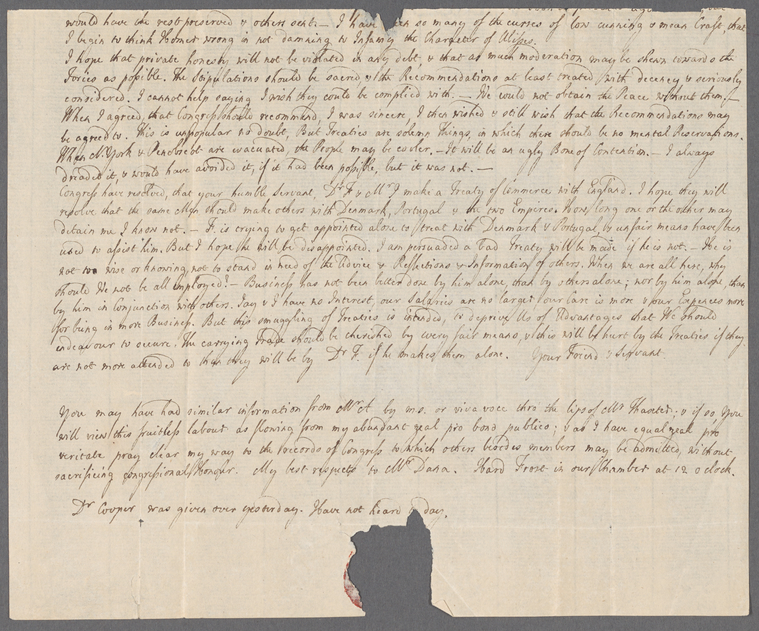 would have the rest preserved & others sent. — I have seen so many of the curses of low cunning & mean Craft, that
I begin to think Homer wrong in not damning to Infamy the Character of Ulisses.
I hope that private honesty will not be violated in any debt, & that as much moderation may be shewn towards the
Tories as possible. The Stipulations should be sacred, & the Recommendations at least treated with decency & seriously
considered. I cannot help saying I wish they could be complied with. — We could not obtain the Peace without them. —
When I agreed, that Congress should recommend, I was sincere, I then wished & still wish that the Recommendations may
be agreed to. This is unpopular no doubt, But Treaties are solemn Things, in which there should be no mental Reservations.
When N. York & Penobscot are evacuated, the People may be cooler. — It will be an ugly Bone of Contention. — I always
dreaded it, & would have avoided it, if it had been possible, but it was not. —
Congress have resolved, that your humble Servant, Dr. F & Mr. J make a Treaty of Commerce with England. I hope they will
resolve that the same Men should make others with Denmark, Portugal & the two Empires. How long one or the other may
detain me I know not. — F. is trying to get appointed alone to treat with Denmark & Portugal, & unfair means have been
used to assist him. But I hope he will be disappointed. I am persuaded a bad Treaty will be made if he is not. — He is
not so wise or knowing not to stand in need of the Advice & Reflections & Information of others. When we are all here, why
should We not be all employed? — Business has not been better done by him alone, than by others alone; nor by him alone, than
by him in Conjunction with others. Jay & I have no Interest, our Salaries are no larger our Care is more & our Expences more
for being in more Business. But this smuggling of Treaties is intended, to deprive Us of Advantages that We should
endeavour to secure. The carrying Trade should be cherished by every fair means, & this will be hurt by the Treaties if they
are not more attended to than they will be by Dr F. if he makes them alone. Your Friend & Servant

You may have had similar information from Mr A by ms. or viva voce thro the lips of Mr Thaxter; & if so you
will view this fruitless labour as flowing from my abundant zeal pro bono publico; & as I have equal zeal pro
veritate pray clear my way to the records of Congress to which others besides members may be admitted, without
sacrificing congressional Honour. My best respects to Mr Dana. Hard Frost in our Chamber at 12 o clock.
Dr Cooper was given over yesterday. Have not heard to day.